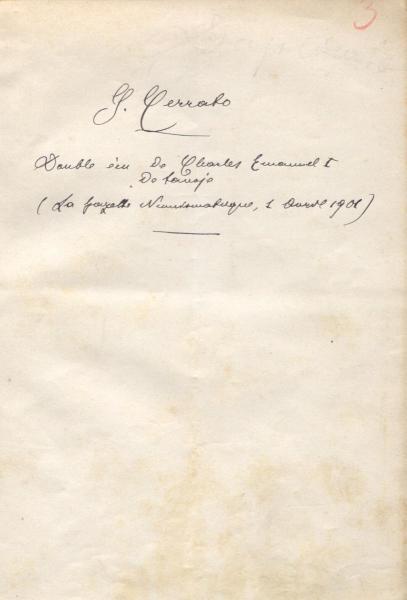 3
G. Cerrato
Double écu De Charles Emanuel I
De Savoje
(La gazette Numismatique, 1 Avril 1901)